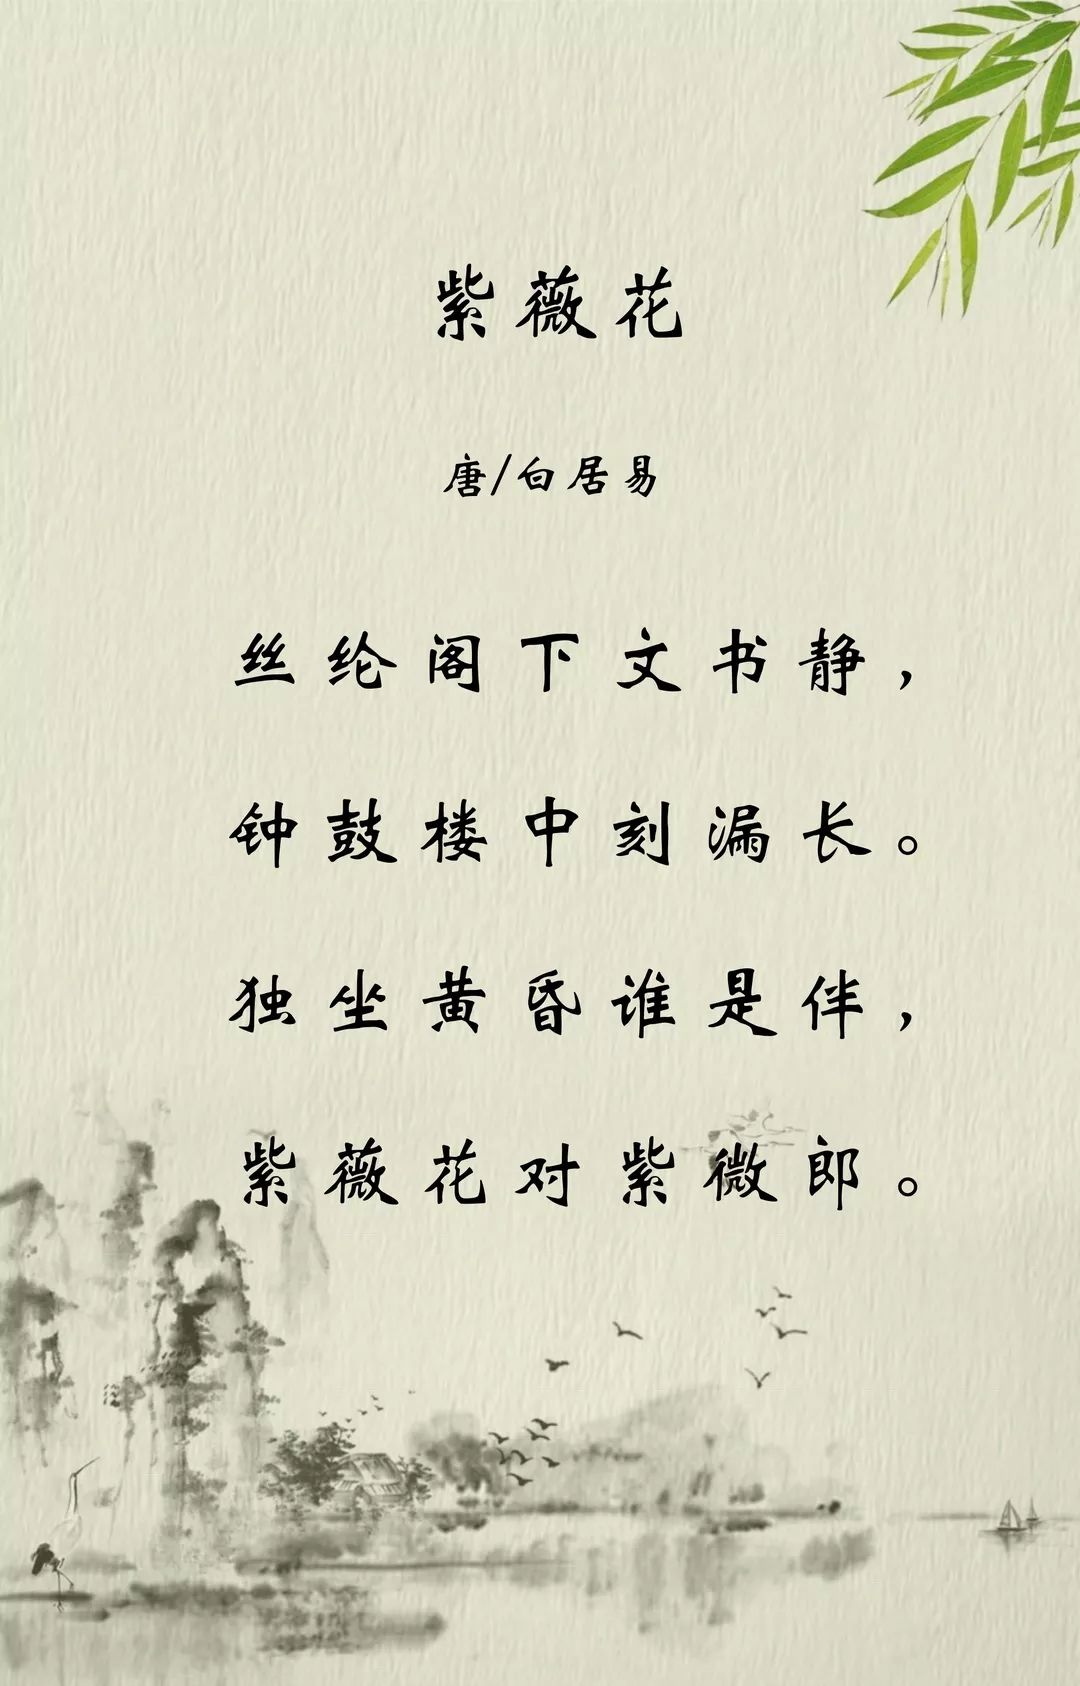 紫薇花
唐/白居易
丝纶阁下文书静，
钟鼓楼中刻漏长。
独坐黄昏谁是伴，
紫薇花对紫微郎。